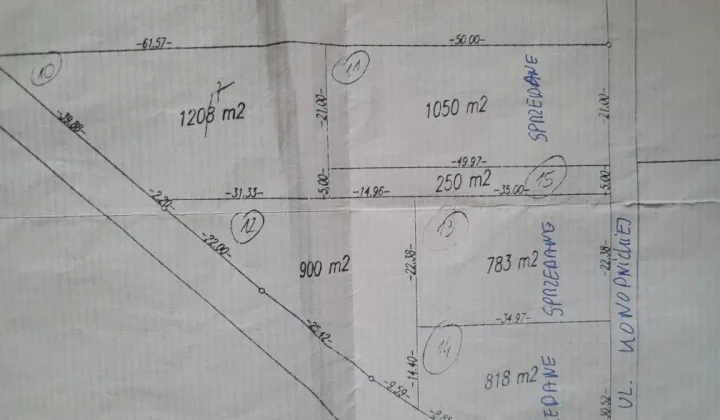 -61.57-
-50.00-
10
11
-39.88-
7
1208 m2
-21.00-
1050 m2
SPRZEDANE
-21.00-
-49.97-
-2.20-
-31.33-
-5.00-
-14.96-
250 m2
-35.00-
15
-5.00-
12
13
-22.00-
900 m2
-22.38-
783 m2
SPRZEDANE
-22.38-
UL. KONOPNICKIEJ
-25.12-
-34.97-
14
-14.40-
-9.59-
818 m2